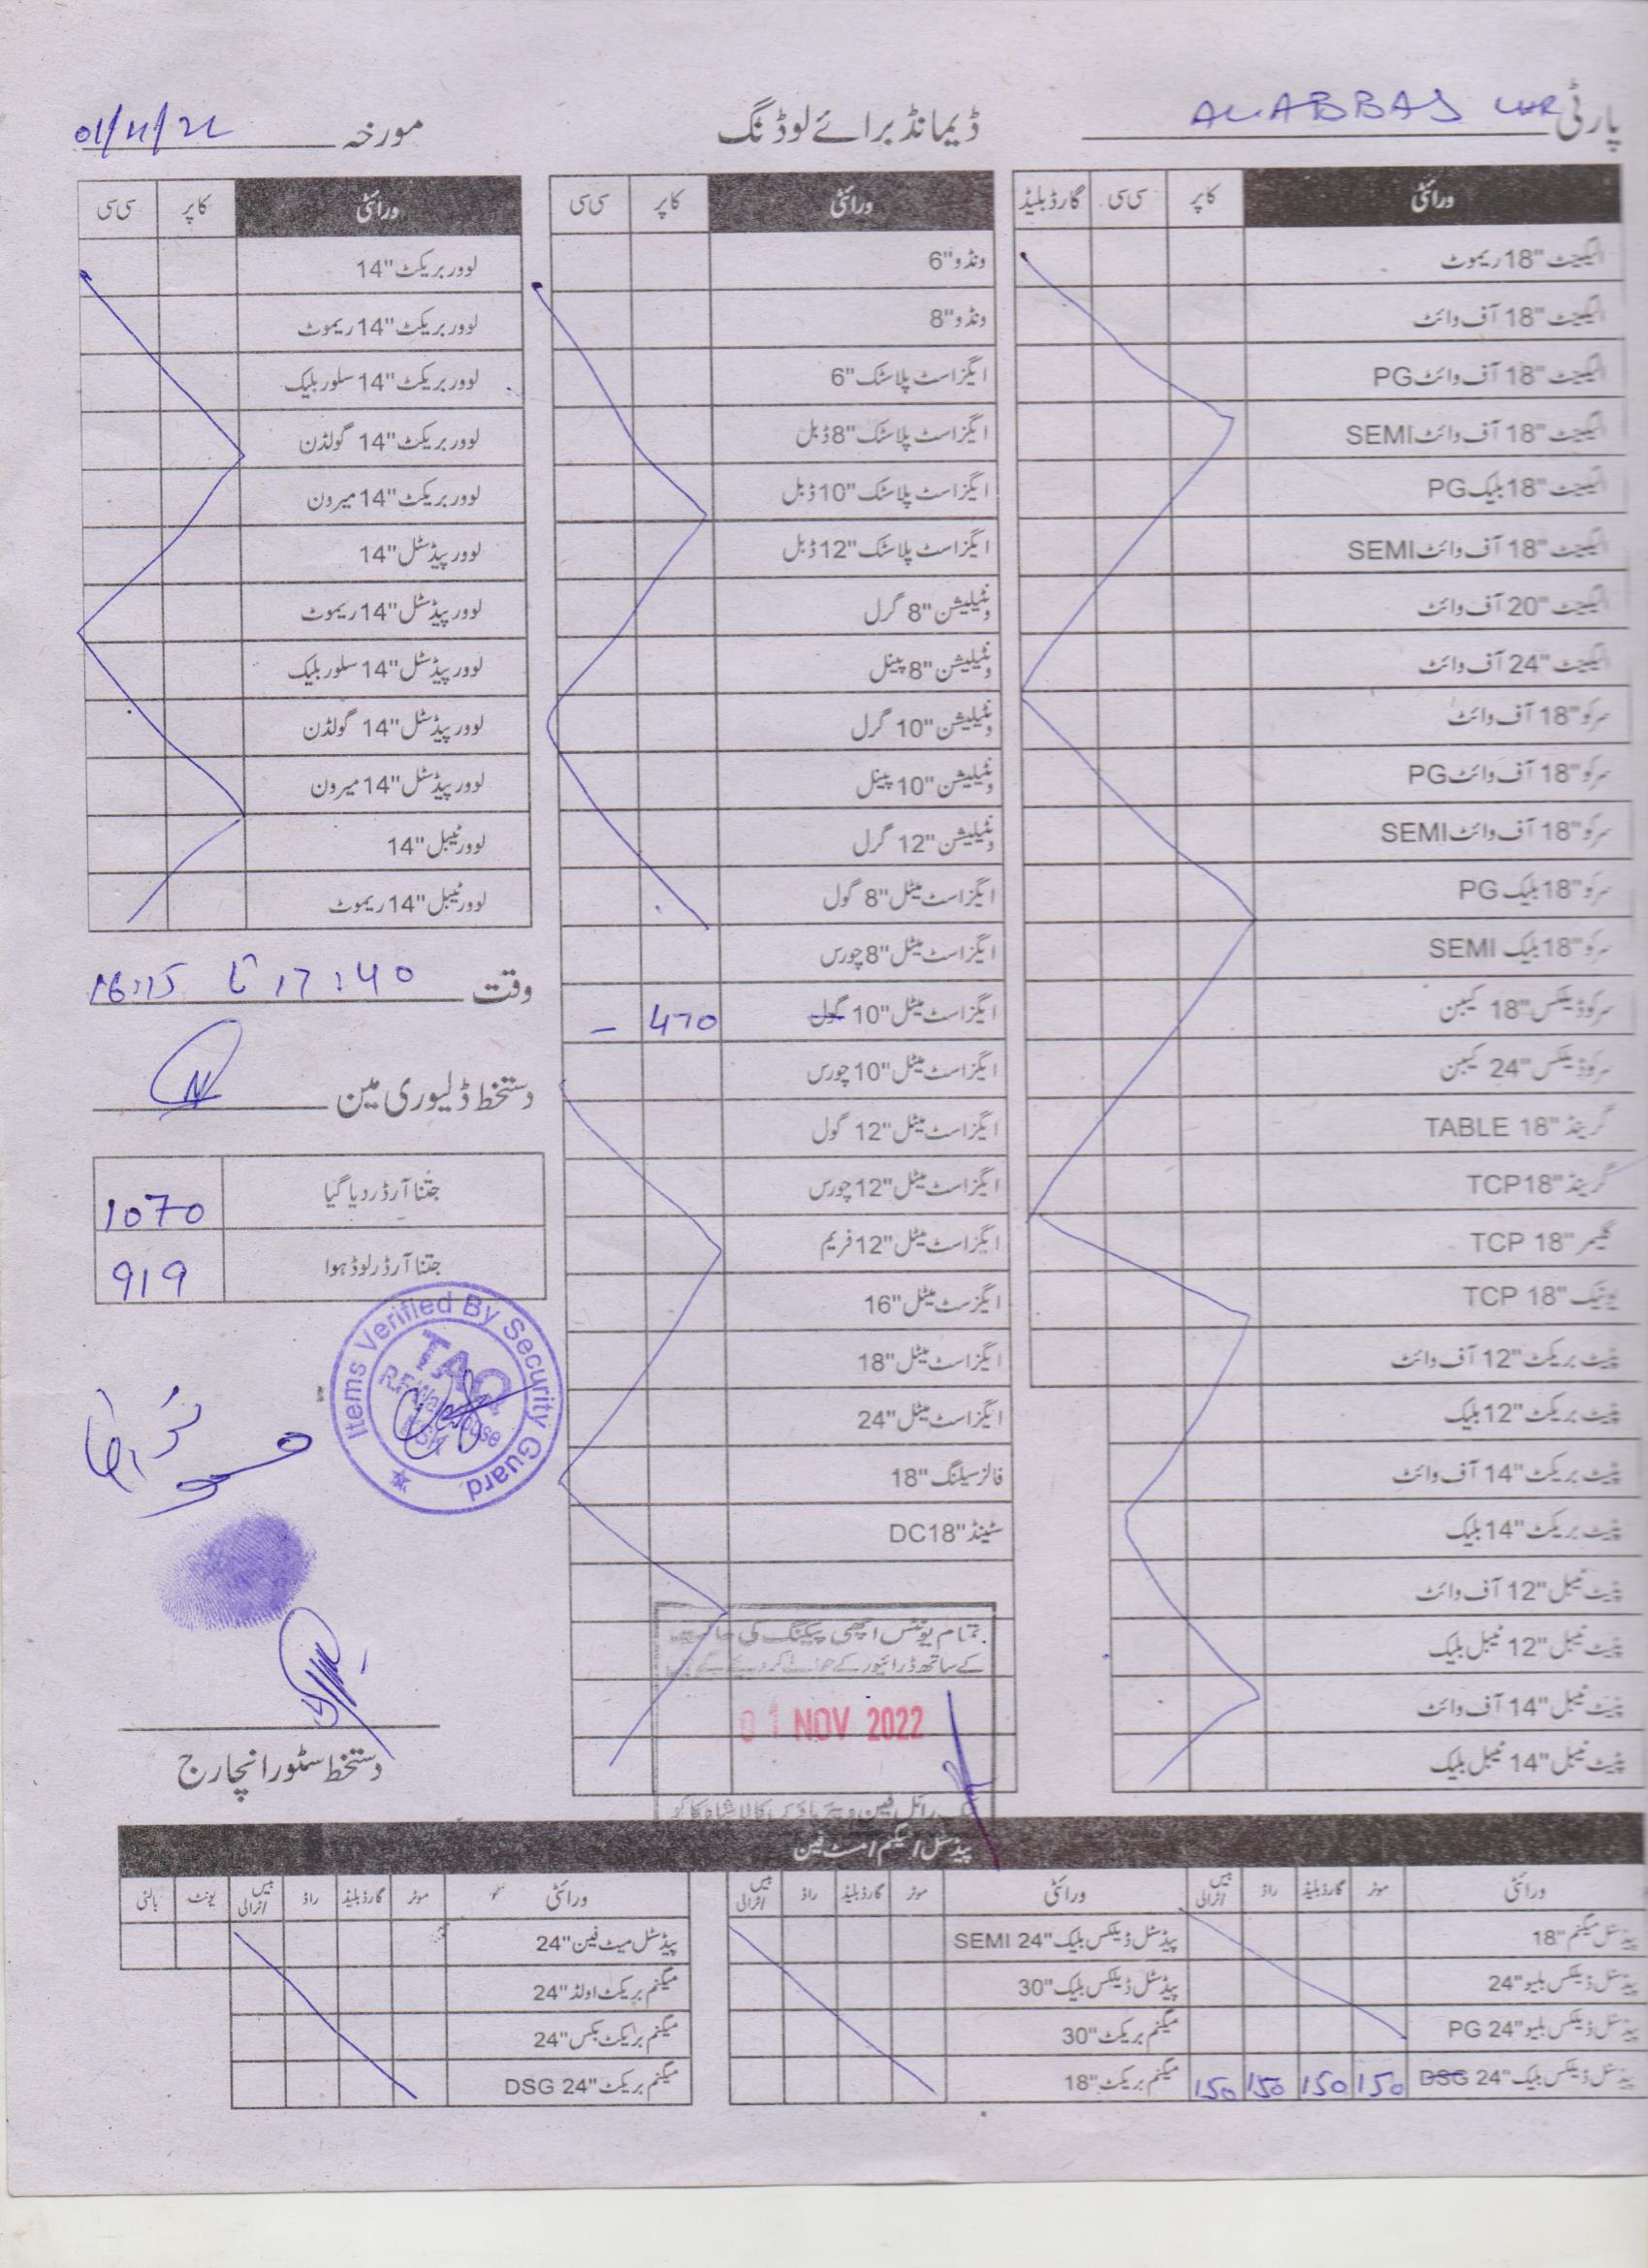 پارٹی AL-ABBAS LHR
ڈیمانڈ برائے لوڈنگ
مورخہ 01/11/22
ورائٹی کاپر سی سی گارڈ بلیڈ
الیکجنٹ "18 ریموٹ
الیکجنٹ "18 آف وائٹ
الیکجنٹ "18 آف وائٹ PG
الیکجنٹ "18 آف وائٹ SEMI
الیکجنٹ "18 بلیک PG
الیکجنٹ "18 آف وائٹ SEMI
الیکجنٹ "20 آف وائٹ
الیکجنٹ "24 آف وائٹ
سرکو "18 آف وائٹ
سرکو "18 آف وائٹ PG
سرکو "18 آف وائٹ SEMI
سرکو "18 بلیک PG
سرکو "18 بلیک SEMI
سرکو ڈیلکس "18 کیبن
سرکو ڈیلکس "24 کیبن
گرینڈ "18 TABLE
گرینڈ "18 TCP
گلیمر "18 TCP
یونیک "18 TCP
پلیٹ بریکٹ "12 آف وائٹ
پلیٹ بریکٹ "12 بلیک
پلیٹ بریکٹ "14 آف وائٹ
پلیٹ بریکٹ "14 بلیک
پلیٹ ٹیبل "12 آف وائٹ
پلیٹ ٹیبل "12 ٹیبل بلیک
پلیٹ ٹیبل "14 آف وائٹ
پلیٹ ٹیبل "14 ٹیبل بلیک
ورائٹی کاپر سی سی
ونڈو "6
ونڈو "8
ایگزاسٹ پلاسٹک "6
ایگزاسٹ پلاسٹک "8 ڈبل
ایگزاسٹ پلاسٹک "10 ڈبل
ایگزاسٹ پلاسٹک "12 ڈبل
ونٹیلیشن "8 گرل
ونٹیلیشن "8 پینل
ونٹیلیشن "10 گرل
ونٹیلیشن "10 پینل
ونٹیلیشن "12 گرل
ایگزاسٹ میٹل "8 گول
ایگزاسٹ میٹل "8 چورس
ایگزاسٹ میٹل "10 گول 470 –
ایگزاسٹ میٹل "10 چورس
ایگزاسٹ میٹل "12 گول
ایگزاسٹ میٹل "12 چورس
ایگزاسٹ میٹل "12 فریم
ایگزسٹ میٹل "16
ایگزاسٹ میٹل "18
ایگزاسٹ میٹل "24
فالز سیلنگ "18
سٹینڈ "DC18
تمام یونٹس اچھی پیکنگ کی
کے ساتھ ڈرائیور کے حوالے کر دیے گے
01 NOV 2022
ورائٹی کاپر سی سی
لوور بریکٹ "14
لوور بریکٹ "14 ریموٹ
لوور بریکٹ "14 سلور بلیک
لوور بریکٹ "14 گولڈن
لوور بریکٹ "14 میرون
لوور پیڈسٹل "14
لوور پیڈسٹل "14 ریموٹ
لوور پیڈسٹل "14 سلور بلیک
لوور پیڈسٹل "14 گولڈن
لوور پیڈسٹل "14 میرون
لوور ٹیبل "14
لوور ٹیبل "14 ریموٹ
وقت 16:15 تا 17:40
دستخط ڈلیوری مین
جتنا آرڈر دیا گیا 1070
جتنا آرڈر لوڈ ہوا 919
Items Verified By Security Guard
TAQ
R.F Warehouse
دستخط سٹور انچارج
پیڈسٹل / میگنم / مسٹ فین
ورائٹی موٹر گارڈ بلیڈ راڈ بیس/ٹرالی
پیڈسٹل میگنم "18
پیڈسٹل ڈیلکس بلیو "24
پیڈسٹل ڈیلکس بلیو "24 PG
پیڈسٹل ڈیلکس بلیک "24 DSG 150 150 150 150
ورائٹی موٹر گارڈ بلیڈ راڈ بیس/ٹرالی
پیڈسٹل ڈیلکس بلیک "24 SEMI
پیڈسٹل ڈیلکس بلیک "30
میگنم بریکٹ "30
میگنم بریکٹ "18
ورائٹی موٹر گارڈ بلیڈ راڈ بیس/ٹرالی یونٹ بالٹی
پیڈسٹل مسٹ فین "24
میگنم بریکٹ اولڈ "24
میگنم بریکٹ بکس "24
میگنم بریکٹ "24 DSG